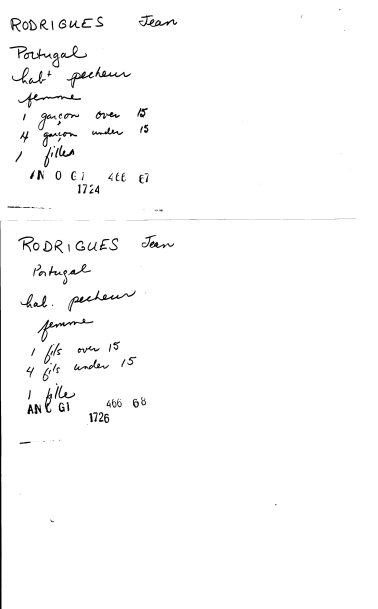 RODRIGUES Jean
Portugal
habt pecheur
femme
1 garçon over 15
4 garçon under 15
1 filles
AN O G1 466 67
1724
RODRIGUES Jean
Portugal
hab. pecheur
femme
1 fils over 15
4 fils under 15
1 fille
AN C G1 466 68
1726